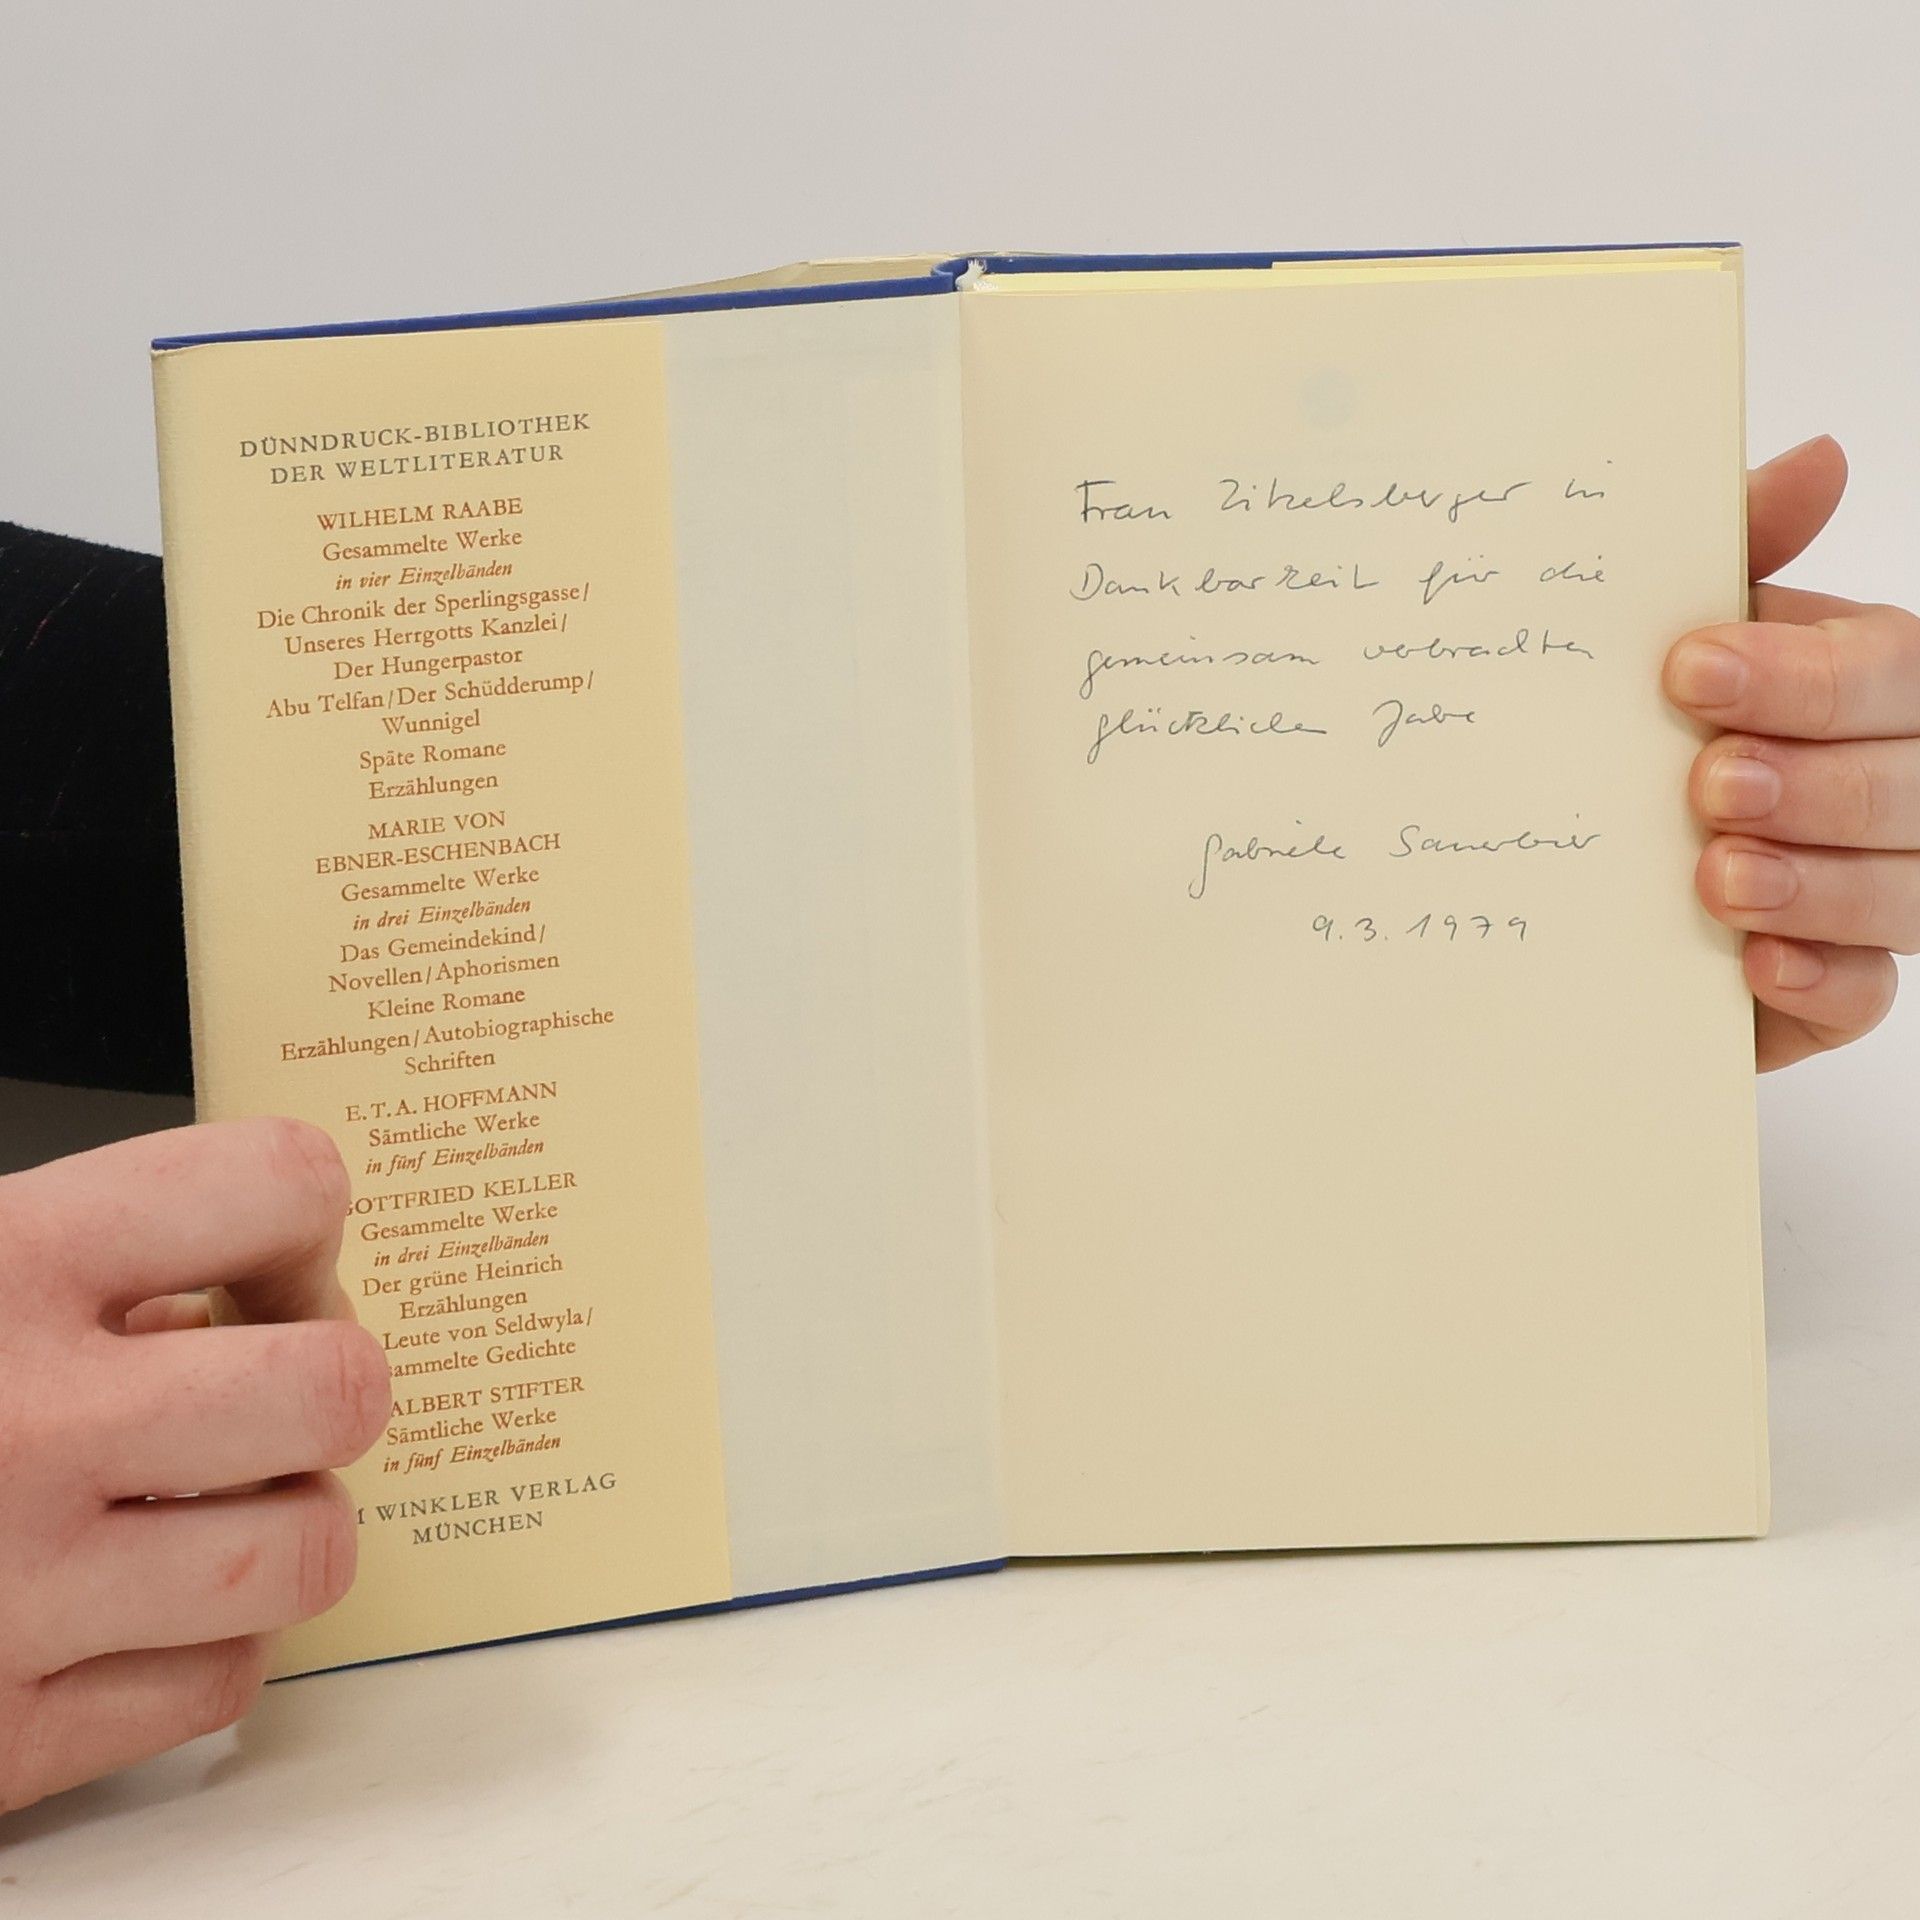 DÜNNDRUCK-BIBLIOTHEK
DER WELTLITERATUR
WILHELM RAABE
Gesammelte Werke
in vier Einzelbänden
Die Chronik der Sperlingsgasse/
Unseres Herrgotts Kanzlei/
Der Hungerpastor
Abu Telfan/Der Schüdderump/
Wunnigel
Späte Romane
Erzählungen
MARIE VON
EBNER-ESCHENBACH
Gesammelte Werke
in drei Einzelbänden
Das Gemeindekind/
Novellen/Aphorismen
Kleine Romane
Erzählungen/Autobiographische
Schriften
E.T.A. HOFFMANN
Sämtliche Werke
in fünf Einzelbänden
GOTTFRIED KELLER
Gesammelte Werke
in drei Einzelbänden
Der grüne Heinrich
Erzählungen
Leute von Seldwyla/
sammelte Gedichte
ALBERT STIFTER
Sämtliche Werke
in fünf Einzelbänden
M WINKLER VERLAG
MÜNCHEN
Frau Zitzelsberger in
Dankbarkeit für die
gemeinsam verbrachten
glücklichen Jahre
Gabriele Sauerbier
9.3.1979